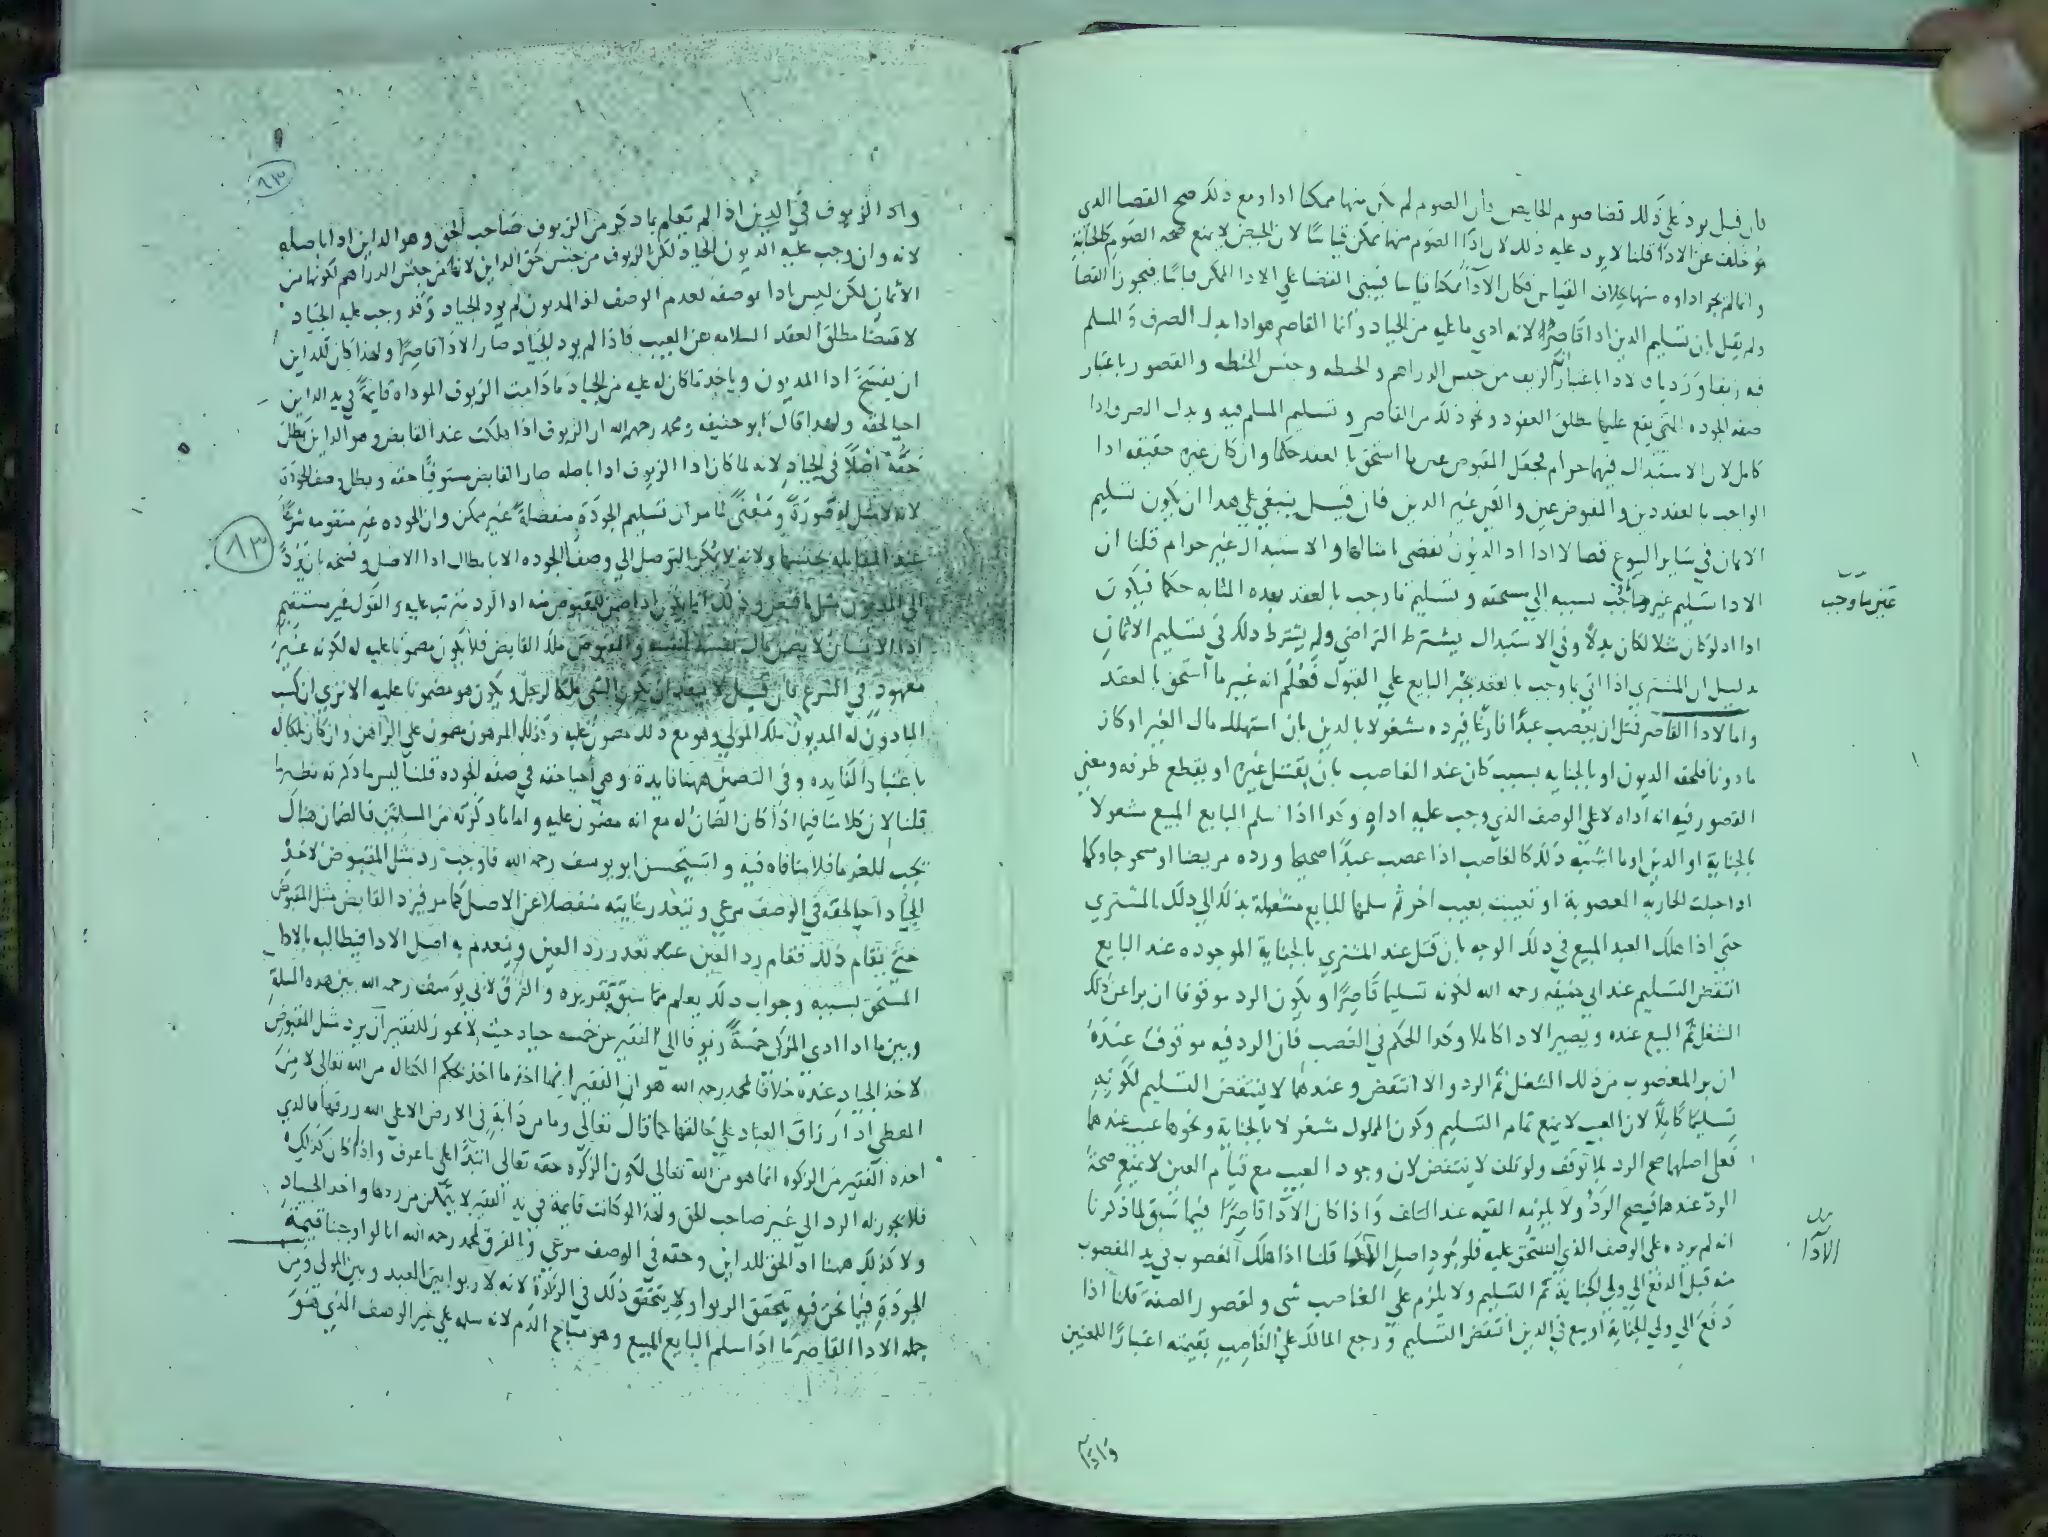 فان قيل يرد على ذلك قضا صوم الحايض فان الصوم لم يكن منها ممكنا اداء ومع ذلك صح القضا الذي
هو خلف عن الاداء قلنا لا يرد عليه ذلك لان اداء الصوم منها ممكن قياسا لان الحيض لا يمنع صحة الصوم كالجنابة
وانما لم يجز اداوه منها بخلاف القياس فكان الاداء ممكنا قياسا فيبنى القضا على الادا الممكن قياسا فيجوز القضا
ولم يقل بان تسليم الدين ادا قاصر لانه ادي ما عليه من الجياد وانما القاصر هو ادا بدل الصرف والمسلم
فيه زيفا و لادا باعتبار ان الزيف من جنس الدراهم والحنطه وجنس الحنطه والقصور باعتبار
صفه الجوده التي يقع عليها مطلق العقود ونحو ذلك من القاصر وتسليم المسلم فيه وبدل الصرف ادا
كامل لان الاستبدال فيهما حرام فجعل المقبوض عين ما استحق بالعقد حكما وان كان غيره حقيقه اذا
الواجب بالعقد دين والمقبوض عين والعين غير الدين فان قيل ينبغي على هذا ان يكون تسليم
الاثمان في ساير البيوع قضا لا ادا اذ الديون تقضي بامثالها والاستبدال غير حرام قلنا ان
الادا تسليم غير ما وجب بسببه الى مستحقه وتسليم ما وجب بالعقد بهذه المثابه حكما فيكون
ادا اذ لو كان مثلا لكان بدلا وفي الاستبدال يشترط التراضي ولم يشترط ذلك في تسليم الاثمان
بدليل ان المشتري اذا اتى بما وجب بالعقد يجبر البايع على القبول فعلم انه غير ما استحق بالعقد
واما الادا القاصر فمثل ان يغصب عبدا فارغا فيرده مشغولا بالدين بان استهلك مال الغير او كان
ماذونا فلحقه الديون او بالجنايه بسبب كان عند الغاصب بان يقتل غيره او يقطع طرفه ومعنى
القصور فيه انه اداه لا على الوصف الذي وجب عليه اداه وكذا اذا سلم البايع المبيع مشغولا
بالجناية او الدين او ما اشبه ذلك كالغاصب اذا غصب عبدا صحيحا ورده مريضا او مجروحا وكما
اذا حبلت الجاريه المغصوبة او تعيبت بعيب اخر ثم سلمها البايع مشغلة بذلك الى ذلك المشتري
حتى اذا هلك العبد المبيع في ذلك الوجه بان قتل عند المشتري بالجناية الموجوده عند البايع
انتقض التسليم عند ابي حنيفه رحمه الله لكونه تسليما قاصرا ويكون الرد موقوفا ان برا عن ذلك
الشغل تم البيع عنده ويصير الادا كاملا وكذا الحكم في الغصب فان الرد فيه موقوف عنده
ان برا المغصوب من ذلك الشغل تم الرد والا انتقض وعندهما لا ينتقض التسليم لكونه
تسليما كاملا لان العيب لا يمنع تمام التسليم وكون المملوك مشغولا بالجناية ونحوها عيب عندهما
فعلى اصلهما صح الرد بلا توقف ولو تلف لا ينتقض لان وجود العيب مع قيام العين لا يمنع صحة
الرد عندهما فيصح الرد ولا يلزمه القيمه عند التلف واذا كان الادا قاصرا فيما سبق لما ذكرنا
انه لم يرده على الوصف الذي استحق عليه فلوجود اصل الادا قلنا اذا هلك المغصوب في يد المغصوب
منه قبل الدفع الى ولي الجناية تم التسليم ولا يلزم على الغاصب شي ولقصور الصفة قلنا اذا
دفع الى ولي الجناية او بيع في الدين انتقض التسليم ورجع المالك على الغاصب بقيمته اعتبارا للمعنيين
غير ما وجب
اصل
الادا
وادا
٨٣
وادا الزيوف في الدين اذا لم تعلم بما ذكر من الزيوف صاحب الحق وهو الداين ادا باصله
لانه وان وجب عليه الديون الجياد لكن الزيوف من جنس حق الداين لانها من جنس الدراهم لكونها من
الاثمان لكن ليس ادا بوصفه لعدم الوصف اذ المديون لم يرد الجياد وقد وجب عليه الجياد
لاقتضا مطلق العقد السلامه عن العيب فاذا لم يرد الجياد صار الادا قاصرا ولهذا كان للداين
ان يفسخ ادا المديون وياخذ ما كان له عليه من الجياد ما دامت الزيوف الموداه قايمة في يد الداين
احيا لحقه ولهذا قال ابو حنيفه ومحمد رحمهما الله ان الزيوف اذا هلكت عند القابض وهو الداين بطل
حقه اصلا في الجياد لانه لما كان ادا الزيوف ادا باصله صار القابض مستوفيا حقه وبطل وصف الجودة
لانه لا مثل له صورة ومعنى لما مر ان تسليم الجودة منفصلة غير ممكن وان الجوده غير متقومه شرعا
عند المقابله بجنسها ولانه لا يمكن التوصل الى وصف الجوده الا بابطال ادا الاصل وفسخه بان يرد
الى المديون مثل ما قبض وذلك انما يكون اذا ضمن المقبوض منه اذ الرد مترتب عليه والقول غير مستقيم
اذ الانسان لا يضمن مال نفسه لنفسه والمقبوض ملك القابض فلا يكون مضمونا عليه له لكونه غير
معهود في الشرع فان قيل لا يبعد ان يكون الشي ملكا لرجل ويكون هو مضمونا عليه الا ترى ان كسب
الماذون له المديون ملك المولى وهو مع ذلك مضمون عليه وكذلك المرهون مضمون على الراهن وان كان ملكا له
باعتبار الفايده وفي التضمين ههنا فايدة وهي احيا حقه في صفه الجوده قلنا ليس ما ذكرته نظيرما
قلنا لان كلامنا فيما اذا كان الضمان له مع انه مضمون عليه واما ما ذكرته من المسلتين فالضمان هناك
يجب للغرما فلا منافاه فيه واستحسن ابو يوسف رحمه الله فاوجب رد مثل المقبوض لاخذ
الجياد احيا لحقه في الوصف مرعي وتعذر رعايته منفصلا عن الاصل كما مر فيرد القابض مثل المقبوض
حتى يقام ذلك مقام رد العين عند تعذر رد العين وينعدم به اصل الادا فيطالبه بالادا
المستحق بسببه وجواب ذلك يعلم مما سبق تقريره والفرق لابي يوسف رحمه الله بين هذه المسلة
وبين ما اذا ادى المزكي خمسة زيوفا الى الفقير عن خمسه جياد حيث لا يجوز للفقير ان يرد مثل المقبوض
لاخذ الجياد عنده خلافا لمحمد رحمه الله هو ان الفقير انما اخذ ما اخذ بحكم الكفاله من الله تعالى لا من
المعطي اذ ارزاق العباد على خالقها كما قال تعالى وما من دابة في الارض الا على الله رزقها فالذي
اخذه الفقير من الزكوه انما هو من الله تعالى لكون الزكوه حقه تعالى ابتدا على ما عرف واذا كان كذلك
فلا يجوز له الرد الى غير صاحب الحق ولهذا لو كانت قايمة في يد الفقير لا يتمكن من ردها واخذ الجياد
ولا كذلك ههنا اذ الحق للداين وحقه في الوصف مرعي والفرق لمحمد رحمه الله انا لو اوجبنا قيمة
الجودة فيما نحن فيه يتحقق الربوا ولا يتحقق ذلك في الزكاة لانه لا ربوا بين العبد وبين المولى ومن
جمله الادا القاصر ما اذا سلم البايع المبيع وهو مباح الدم لانه سلمه على غير الوصف الذي هو
٨٣